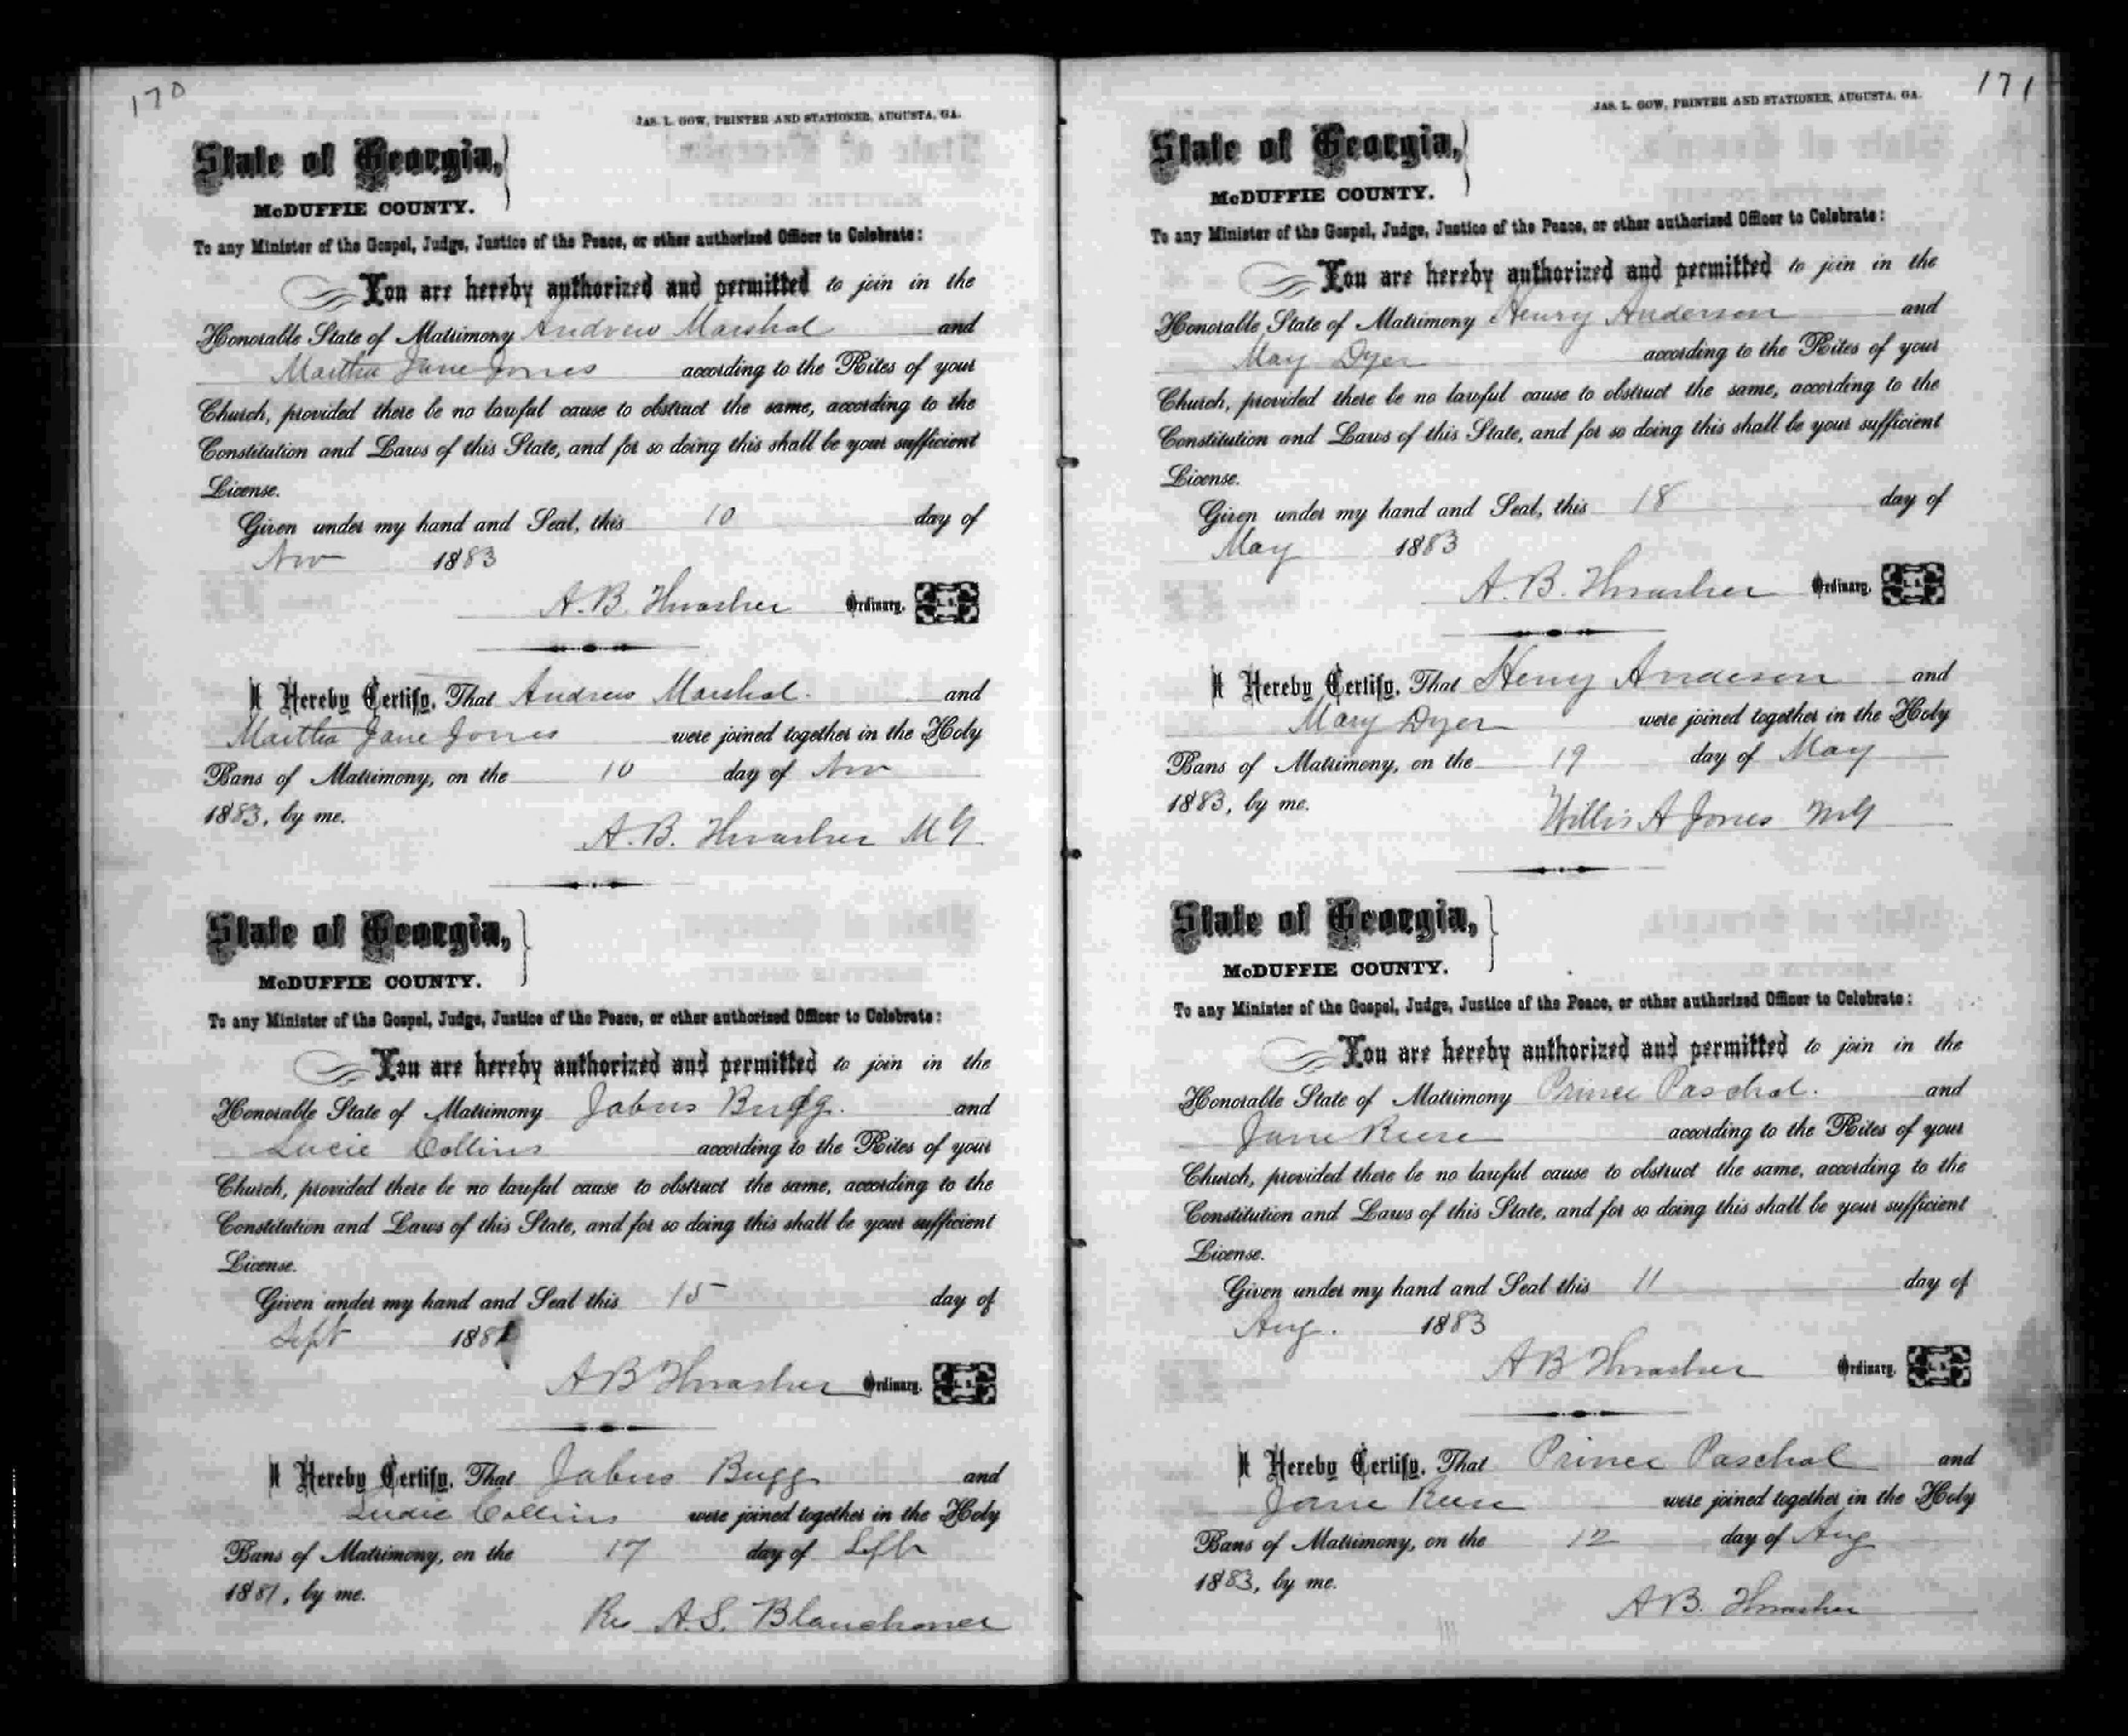 170
JAS. L. GOW, PRINTER AND STATIONER, AUGUSTA, GA.
State of Georgia,
McDUFFIE COUNTY.
To any Minister of the Gospel, Judge, Justice of the Peace, or other authorized Officer to Celebrate:
You are hereby authorized and permitted to join in the
Honorable State of Matrimony Andrew Marshal and
Martha Jane Jones according to the Rites of your
Church, provided there be no lawful cause to obstruct the same, according to the
Constitution and Laws of this State, and for so doing this shall be your sufficient
License.
Given under my hand and Seal, this 10 day of
Nov 1883
A. B. Thrasher Ordinary. L. S.
I Hereby Certify, That Andrew Marshal. and
Martha Jane Jones were joined together in the Holy
Bans of Matrimony, on the 10 day of Nov
1883, by me.
A. B. Thrasher M G
State of Georgia,
McDUFFIE COUNTY.
To any Minister of the Gospel, Judge, Justice of the Peace, or other authorized Officer to Celebrate:
You are hereby authorized and permitted to join in the
Honorable State of Matrimony Jabus Bugg. and
Lucie Collins according to the Rites of your
Church, provided there be no lawful cause to obstruct the same, according to the
Constitution and Laws of this State, and for so doing this shall be your sufficient
License.
Given under my hand and Seal this 15 day of
Sept 1881
A B Thrasher Ordinary. L. S.
I Hereby Certify, That Jabus Bugg and
Lucie Collins were joined together in the Holy
Bans of Matrimony, on the 17 day of Sept
1881, by me.
Rev A. S.
171
JAS. L. GOW, PRINTER AND STATIONER, AUGUSTA, GA.
State of Georgia,
McDUFFIE COUNTY.
To any Minister of the Gospel, Judge, Justice of the Peace, or other authorized Officer to Celebrate:
You are hereby authorized and permitted to join in the
Honorable State of Matrimony Henry Anderson and
May Dyer according to the Rites of your
Church, provided there be no lawful cause to obstruct the same, according to the
Constitution and Laws of this State, and for so doing this shall be your sufficient
License.
Given under my hand and Seal, this 18 day of
May 1883
A. B. Thrasher Ordinary. L. S.
I Hereby Certify, That Henry Anderson and
Mary Dyer were joined together in the Holy
Bans of Matrimony, on the 19 day of May
1883, by me.
Willis A Jones MG
State of Georgia,
McDUFFIE COUNTY.
To any Minister of the Gospel, Judge, Justice of the Peace, or other authorized Officer to Celebrate:
You are hereby authorized and permitted to join in the
Honorable State of Matrimony Prince Paschal. and
Jane Reese according to the Rites of your
Church, provided there be no lawful cause to obstruct the same, according to the
Constitution and Laws of this State, and for so doing this shall be your sufficient
License.
Given under my hand and Seal this 11 day of
Aug. 1883
A B Thrasher Ordinary. L. S.
I Hereby Certify, That Prince Paschal and
Jane Reese were joined together in the Holy
Bans of Matrimony, on the 12 day of Aug
1883, by me.
A B. Thrasher